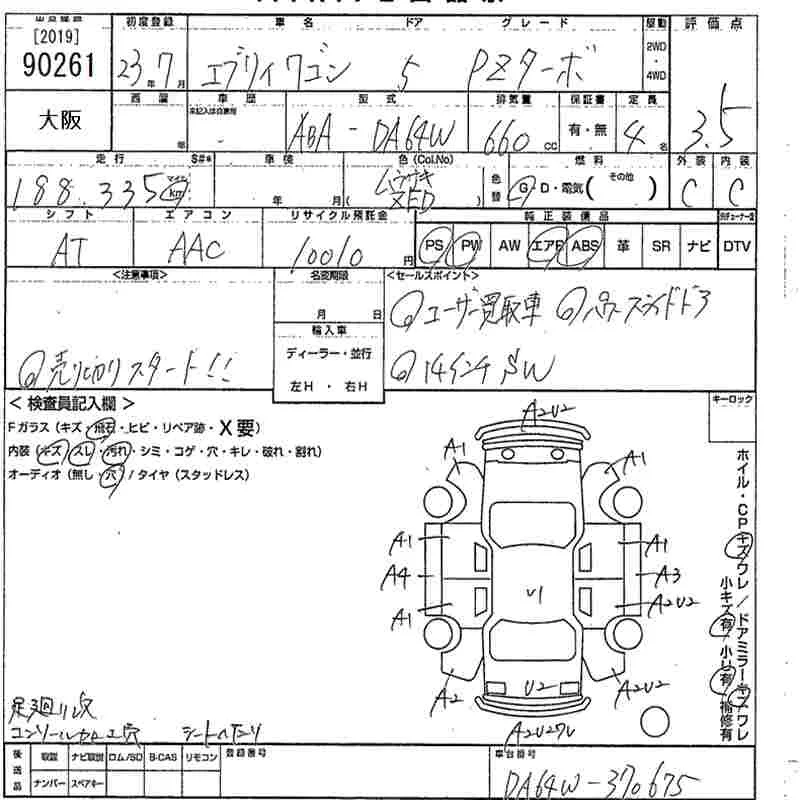 初度登録 車名 ドア グレード 駆動 評価点
[2019]
90261 23年7月 エブリィワゴン 5 PZターボ 2WD・4WD
大阪
車歴 型式 排気量 保証書 定員
未記入は自家用
年 ABA - DA64W 660cc 有・無 4名 3.5
走行 S#* 車検 色(Col.No) 燃料 外装 内装
188,335 マイル km 年 月 ( ZED ) 色替 G・D・電気( その他 ) C C
シフト エアコン リサイクル預託金 純正装備品
AT AAC 10010円 PS PW AW エアB ABS 革 SR ナビ DTV
<注意事項> 名変期限 <セールスポイント>
月 日 ◎ユーザー買取車 ◎パワースライドドア
輸入車
ディーラー・並行
◎売り切りスタート!! 左H・右H ◎14インチSW
<検査員記入欄> キーロック
Fガラス(キズ・飛石・ヒビ・リペア跡・X要)
内装(キズ・スレ・汚れ・シミ・コゲ・穴・キレ・破れ・割れ)
オーディオ(無し・穴)/タイヤ(スタッドレス)
A2U2
A1 A1
A1 A1
A4 A3
U1
A1 A2U2
A2 U2 A2U2
A2U2ワレ
ホイル・CPキズワレ/ドアミラーキズワレ
小キズ有・小U有・補修有
足廻りサビ
コンソール加工穴 シートヘタリ
後送品 取説 ナビ取説 ロム/SD B-CAS リモコン 登録番号 車台番号
ナンバー スペアキー DA64W-370675